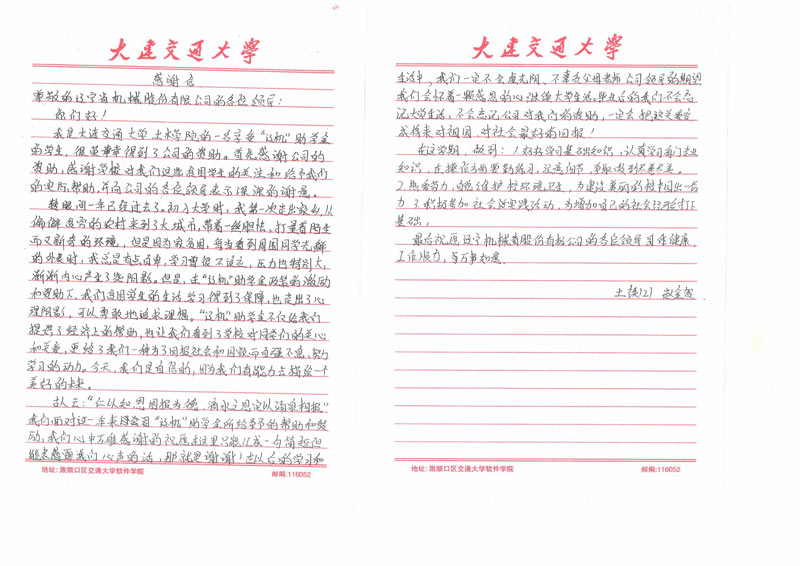 大连交通大学
感谢信
尊敬的辽宁省机械股份有限公司的各位领导:
你们好!
我是大连交通大学土木学院的一名享受“辽机”助学金
的学生,很荣幸得到了公司的资助。首先感谢公司的
资助,感谢学校对我们这些贫困学生的关注和给予我们
的实际帮助,并向公司的各位领导表示深深的谢意。
转眼间一年已经过去了。初入大学时,我第一次走出家乡,从
偏僻贫穷的农村来到了大城市,带着一丝胆怯,打量着陌生
而又新奇的环境,但是因为家贫困,每当看到周围同学光鲜
的外表时,我总是有点自卑,学习曾很不适应,压力也特别大,
渐渐内心产生了些阴影。但是,在“辽机”助学金政策的激励
和资助下,我们贫困学生的生活、学习得到了保障,也走出了心
理阴影,可以勇敢地追求理想。“辽机”助学金不仅给我们
提供了经济上的帮助,也让我们看到了学校对同学们的关心
和关爱,更给了我们一种为了回报社会和回馈而自强不息,努力
学习的动力。今天,我们是自信的,因为我们有能力去描绘一个
美好的未来。
古人云:“仁以知恩图报为德,滴水之恩定以涌泉相报”
我们面对这一年来得益于“辽机”助学金所给予的帮助和鼓
励,我们心中万难感谢的祝愿在这里只能汇成一句简短但
能表感源我们心声的话,那就是谢谢!在以后的学习和
地址: 旅顺口区交通大学软件学院
邮编:116052
大连交通大学
生活中,我们一定不会虚光阴、不辜负父母老师公司领导的期望
我们会怀着一颗感恩的心继续大学生活。毕业后的我们不会忘
记大学生活,不会忘记公司对我们的资助,一定会把这关爱变
成将来对祖国、对社会最好的回报!
在这学期,做到:1好好学习基础知识,认真学习专门专业
知识,在操作方面要勤练习,注意细节,争取做到尽善尽美。
2.热爱劳力,自觉维护校环境卫生,为建设美丽的校园出一份
力 3积极参加社会实践活动,为增加自己的社会经验打下
基础;
最后祝愿辽宁机械省股份有限公司的各位领导身体健康,
工作顺利,万事如意。
土铁121
地址: 旅顺口区交通大学软件学院
邮编:116052